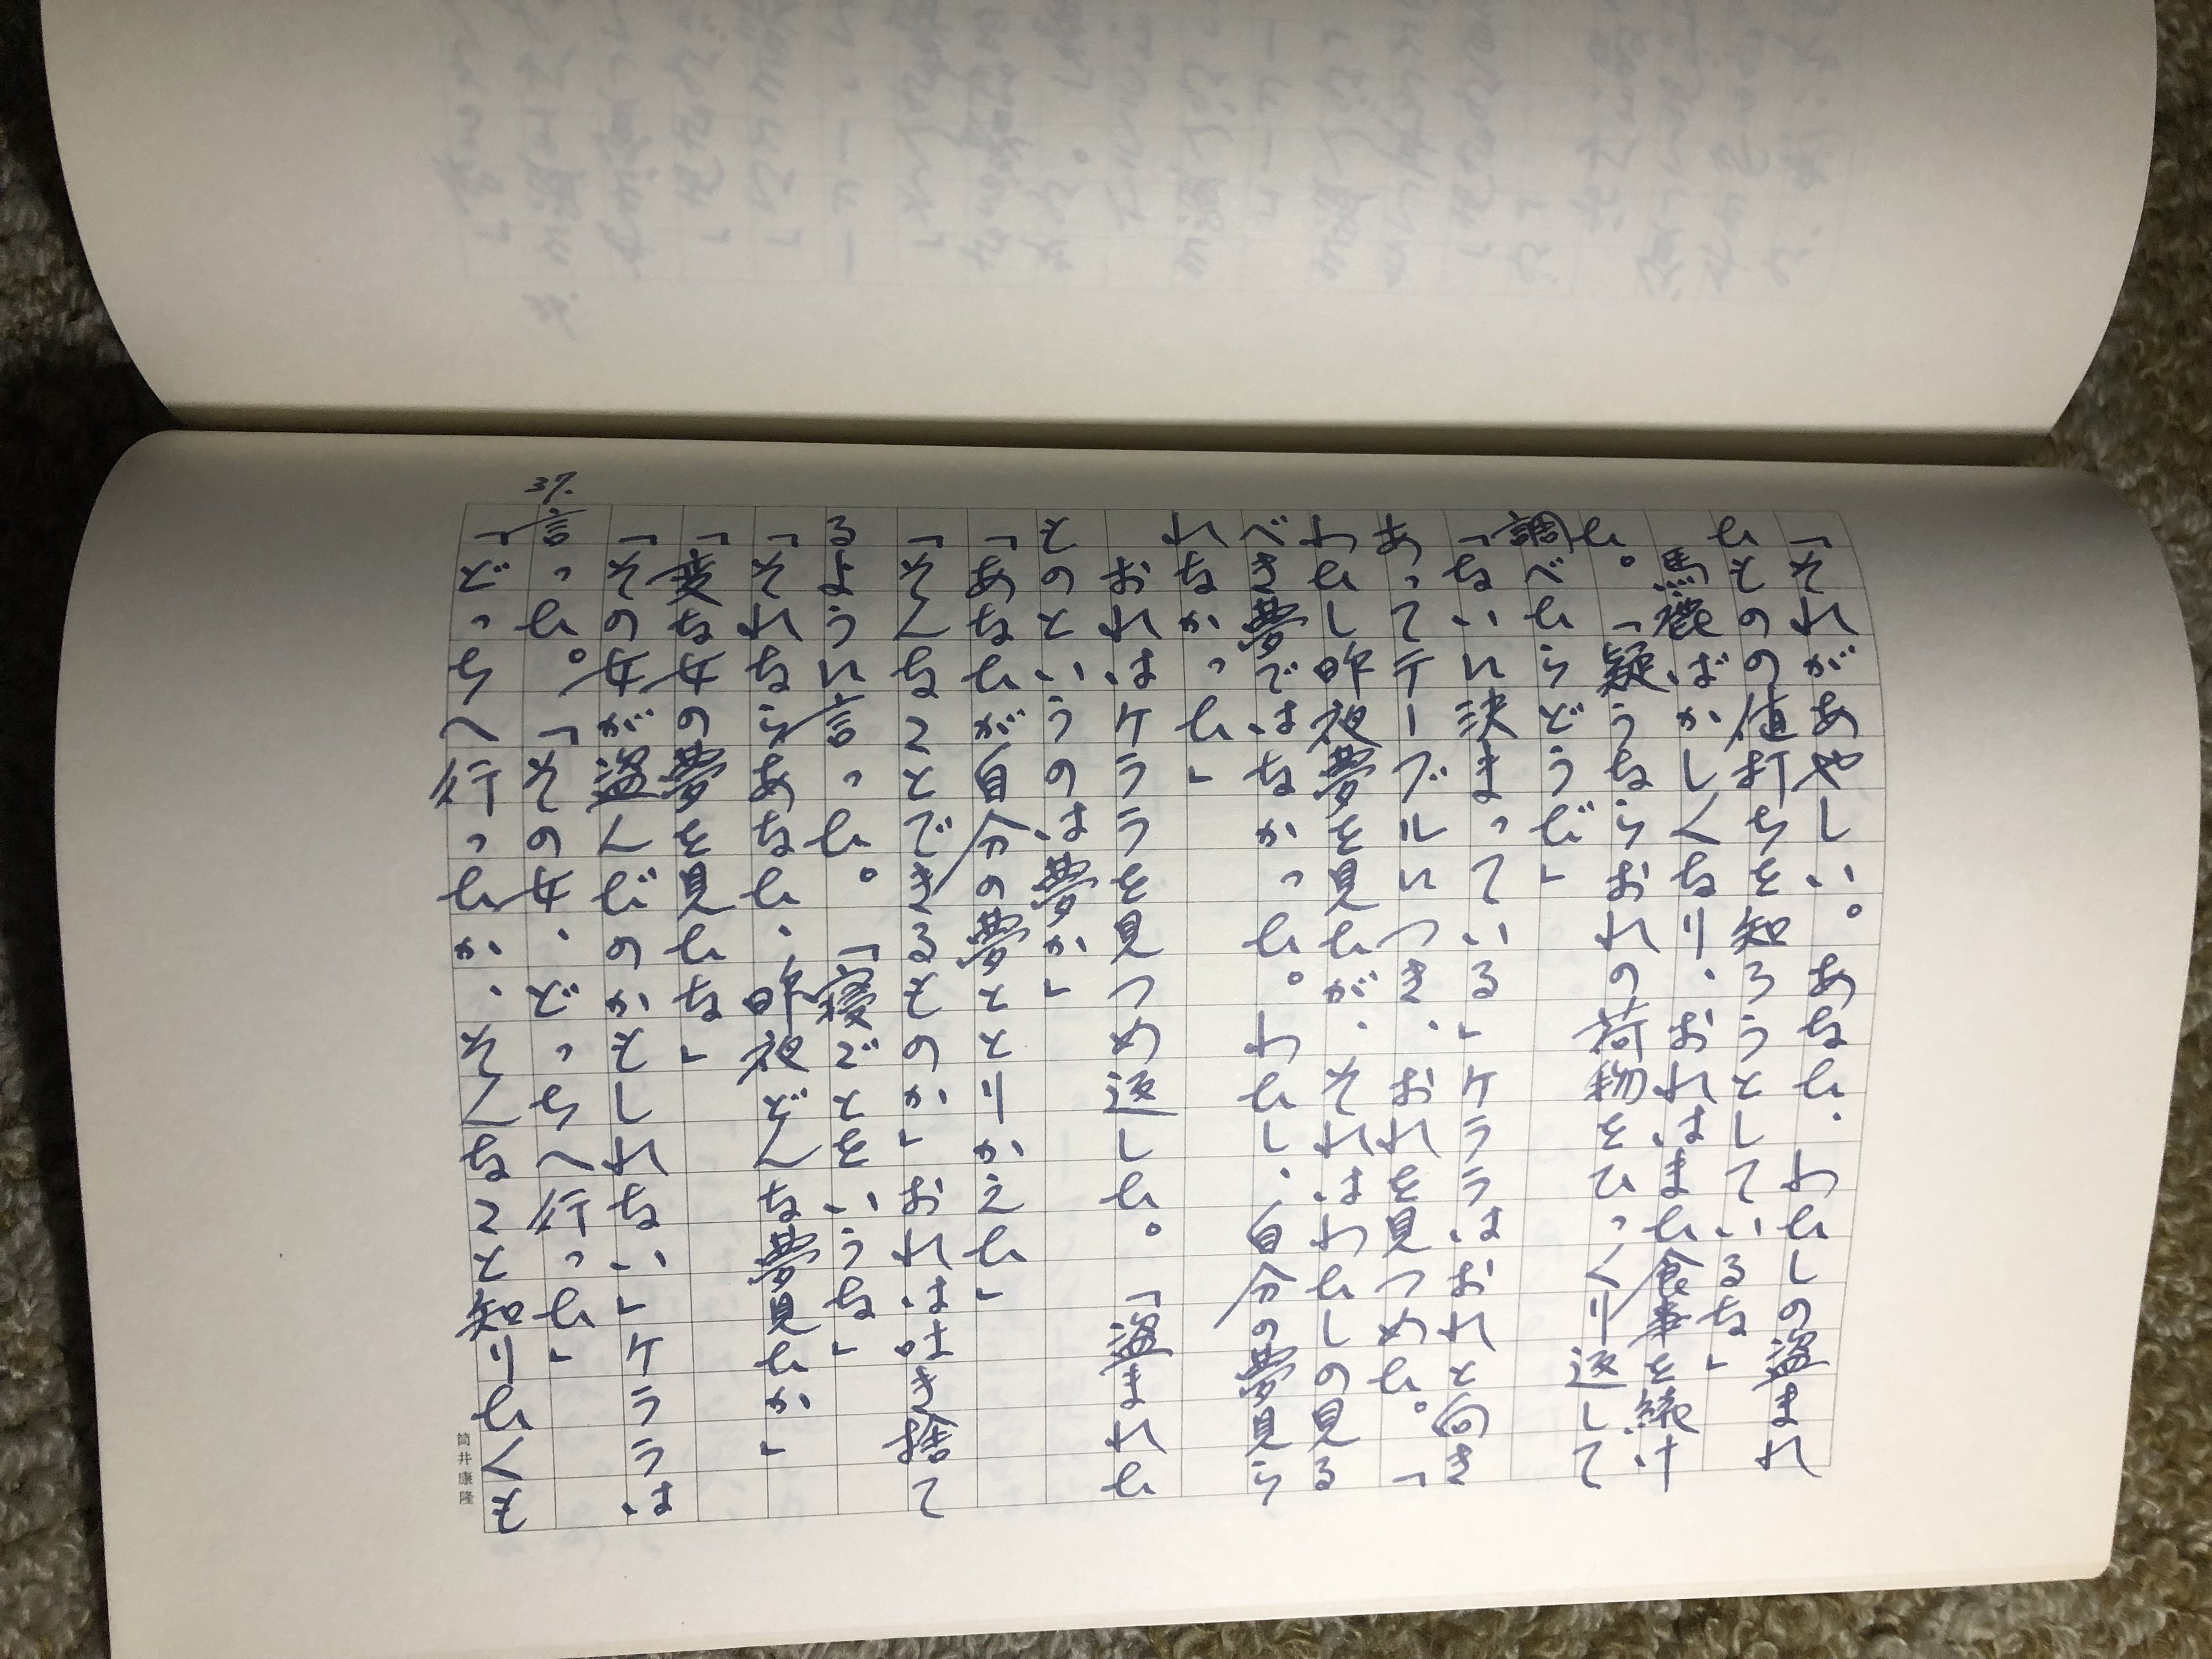 「それがあやしい。あなた、わたしの盗まれ
たもの値打ちを知ろうとしているな」
馬鹿ばかしくなり、おれはまた食事を続け
た。「疑うならおれの荷物をひっくり返して
調べたらどうだ」
「ないに決まっている」ケララはおれと向き
あってテーブルにつき、おれを見つめた。「
わたし昨夜夢を見たが、それはわたしの見る
べき夢ではなかった。わたし、自分の夢見ら
れなかった」
おれはケララを見つめ返した。「盗まれた
ものというのは夢か」
「あなたが自分の夢ととりかえた」
「そんなことできるものか」おれははき捨て
るように言った。「寝ごとをいうな」
「それならあなた、昨夜どんな夢見たか」
「変な女の夢を見たな」
「その女が盗んだのかもしれない」ケララは
言った。「その女、どっちへ行った」
「どっちへ行ったか、そんなこと知りたくも
37.
筒井康隆